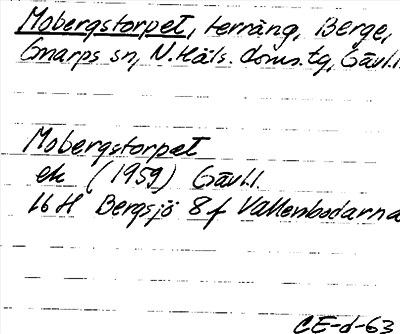 Mobergstorpet, terräng, Berge,
Gnarps sn, N. Häls. doms.tg, Gävl.l.
Mobergstorpet
ek (1959) Gävl.l.
16 H Bergsjö 8 f Vallenbodarna
CE-d-63